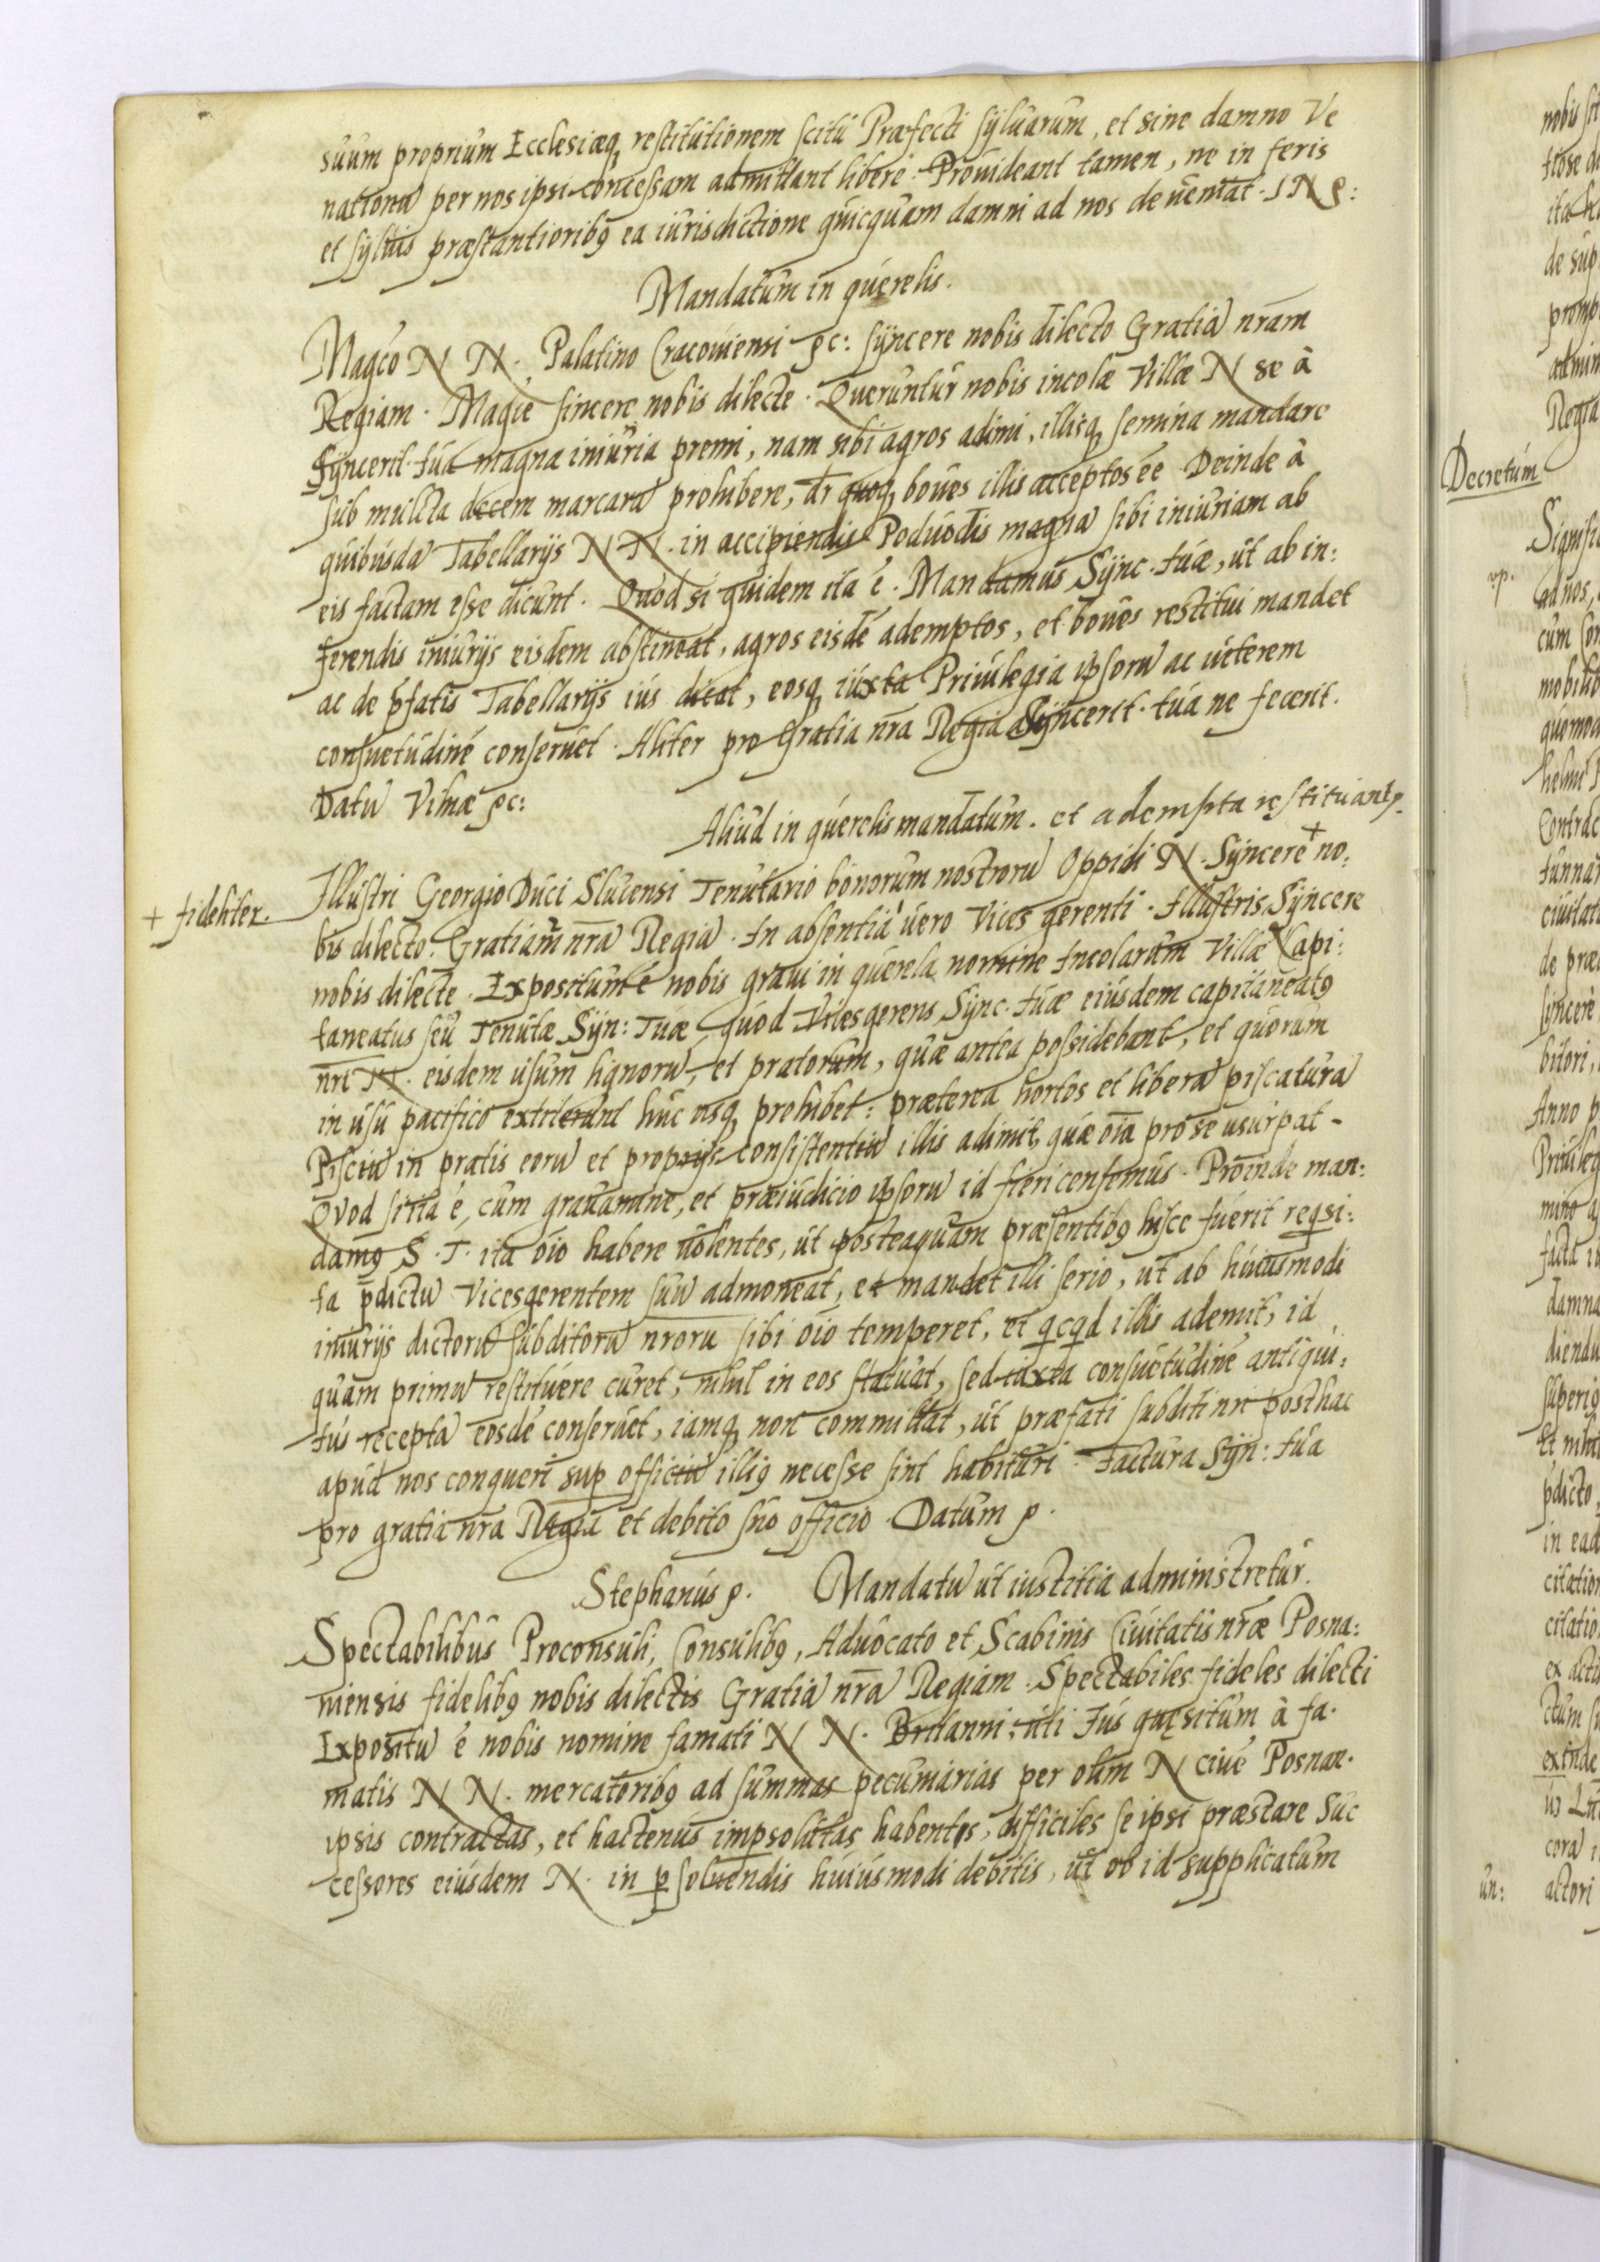 suum proprium Ecclesiæq; restitutionem scitu Præfecti syluarum, et sine damno Ve
nationū per nos ipsi concessam admittant libere. Prouideant tamen, ne in feris
et syluis præstantioribꝯ ea iurisdictione quicquam damni ad nos deueniat. IN &:
Mandatum in querelis.
Magco N N. Palatino Cracouiensi &c: syncere nobis dilecto Gratiā nr̄am
Regiam. Magce sincere nobis dilecte. Queruntur nobis incolæ Villæ N se à
Syncerit. tua magna iniuria premi, nam sibi agros adimi, illisq; semina mandare
sub mulcta decem marcarū prohibere, dr̄ quoq; boues illis acceptos ēē. Deinde à
quibusdā Tabellarijs N N. in accipiendis Poduodis magnā sibi iniuriam ab
eis factam esse dicunt. Quod si quidem ita ē. Mandamus Sync. tuæ, ut ab in:
ferendis iniurijs eisdem abstineat, agros eisdē ademptos, et boues restitui mandet
ac de p̄fatis Tabellarijs ius dicat, eosq; iuxta Priuilegia ipsorū ac ueterem
consuetudinē conseruet. Aliter pro Gratia nr̄a Regia Syncerit. tua ne fecerit.
Datū Vilnæ &c:
Aliud in querelis mandatum. et adempta restituant̄.
Illustri Georgio Duci Slucensi Tenutario bonorum nostrorū Oppidi N. Syncere + no:
+ fideliter.
bis dilecto. Gratiam nr̄ā Regiā. In absentia uero Vices gerenti. Illustris Syncere
nobis dilecte. Expositum ē nobis graui in querela nomine Incolarum Villæ N Capi:
taneatus seu Tenutæ Syn: Tuæ, quod Vicesgerens Sync. tuæ eiusdem capitaneatꝯ
nr̄i N. eisdem usum lignorū, et pratorum, quæ antea possidebant, et quorum
in usu pacifico extiterunt huc usq; prohibet: præterea hortos et liberā piscaturā
Pisciū in pratis eorū et proprijs consistentiū illis adimit, quæ oīa pro se usurpat -
Quod si ita ē, cum grauamine, et præiudicio ipsorū id fieri censemus. Proinde man:
damꝯ S. T. ita oīo habere uolentes, ut posteaquam præsentibꝯ hisce fuerit reqsi:
ta p̄dictū Vicesgerentem suū admoneat, et mandet illi serio, ut ab huiusmodi
iniurijs dictorū subditorū nr̄orū sibi oīo temperet, et qcqd illis ademit, id
quam primū restituere curet, nihil in eos statuat, sed iuxta consuetudinē antiqui:
tus receptā eosdē conseruet, iamq; non committat, ut præfati subditi nr̄i posthac
apud nos conqueri sup officiū illiꝯ necesse sint habituri. Factura Syn: tua
pro gratia nr̄a Regia et debito suo officio. Datum &.
Stephanus &. Mandatū ut iustitia administretur.
Spectabilibus Proconsuli, Consulibꝯ, Aduocato et Scabinis Ciuitatis nr̄æ Posna:
niensis fidelibꝯ nobis dilectis Gratiā nr̄ā Regiam. Spectabiles fideles dilecti
Expositū ē nobis nomine famati N N. Britanni, uti Ius quęsitum à fa.
matis N N. mercatoribꝯ ad summas pecuniarias per olim N ciuē Posnan.
ipsis contractas, et hactenus impsolutas habentes, difficiles se ipsi præstare Suc
cessores eiusdem N. in psoluendis huiusmodi debitis, ut ob id supplicatum
Decretum